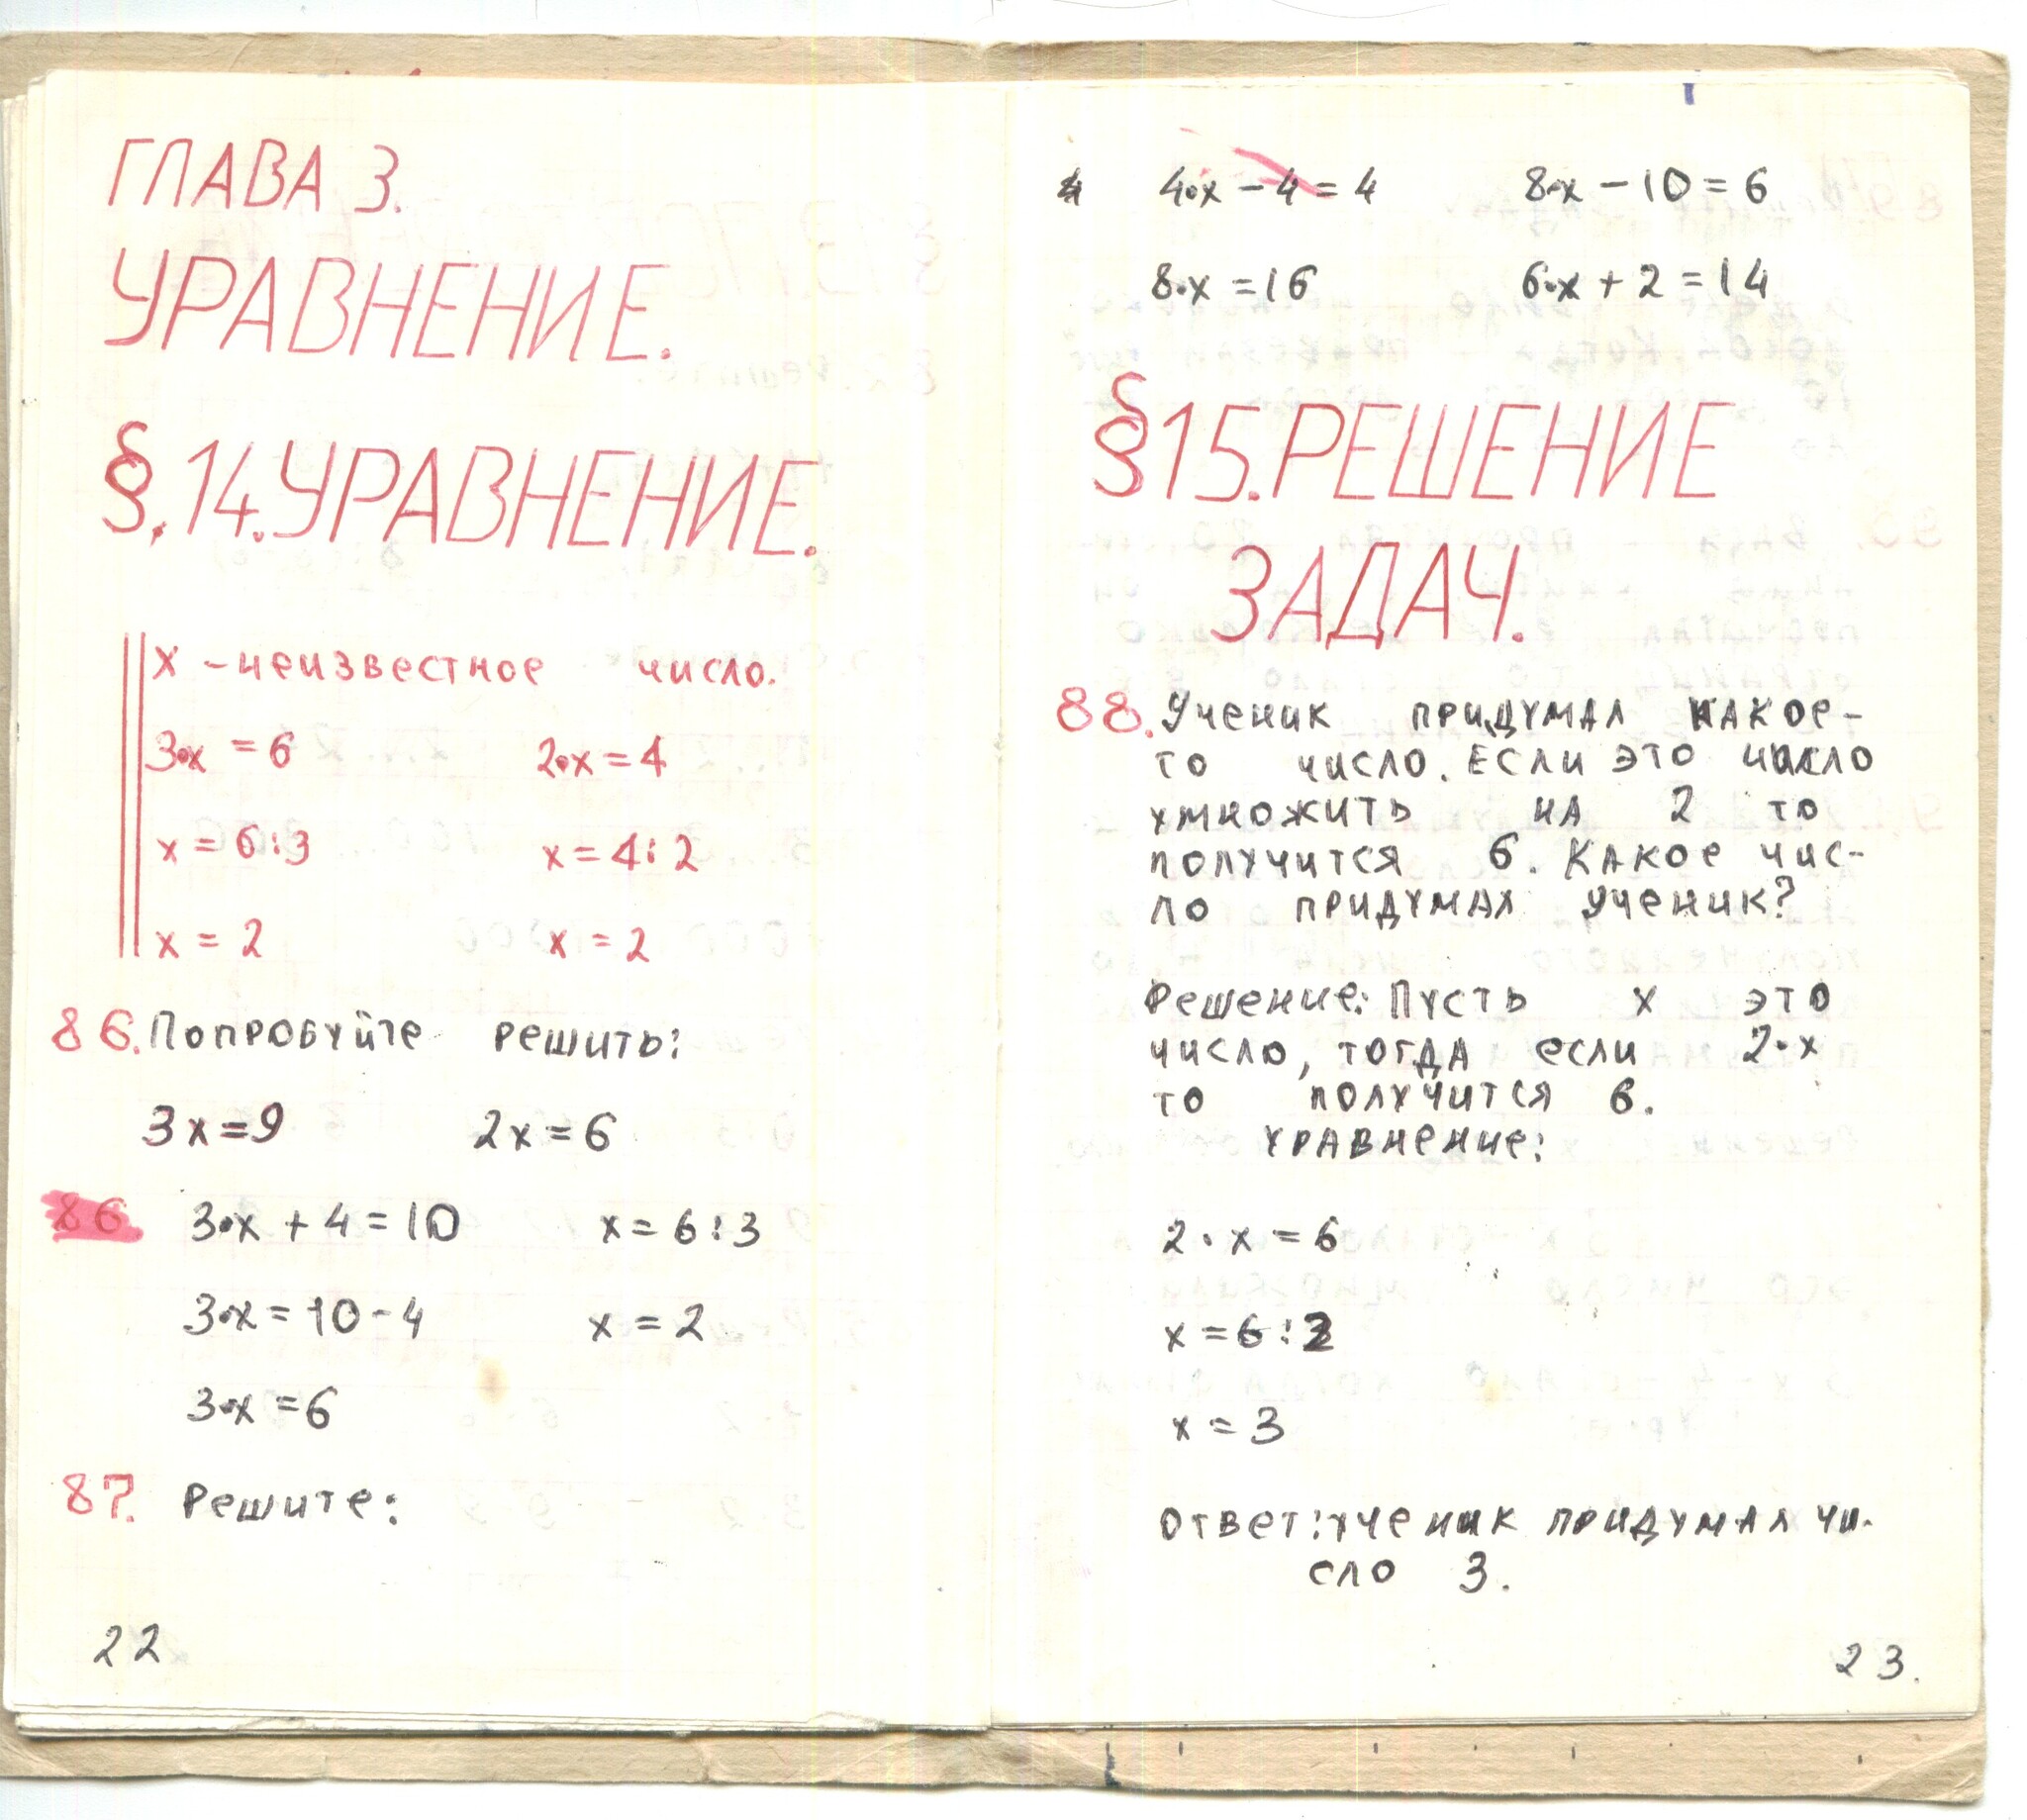 ГЛАВА 3.
УРАВНЕНИЕ.
§.14.УРАВНЕНИЕ.
x – неизвестное число.
3•x = 6 2•x = 4
x = 6:3 x = 4:2
x = 2 x = 2
86. Попробуйте решить:
3x=9 2x=6
86 3•x + 4 = 10 x = 6:3
3•x = 10 - 4 x = 2
3•x = 6
87. Решите:
22
4 4•x – 4 = 4 8•x – 10 = 6
8•x = 16 6•x + 2 = 14
§15.РЕШЕНИЕ
ЗАДАЧ.
88. Ученик придумал какое-
то число. Если это число
умножить на 2 то
получится 6. Какое чис-
ло придумал ученик?
Решение: Пусть x это
число, тогда если 2•x
то получится 6.
уравнение:
2 • x = 6
x = 6:2
x = 3
Ответ: ученик придумал чи-
сло 3.
23.